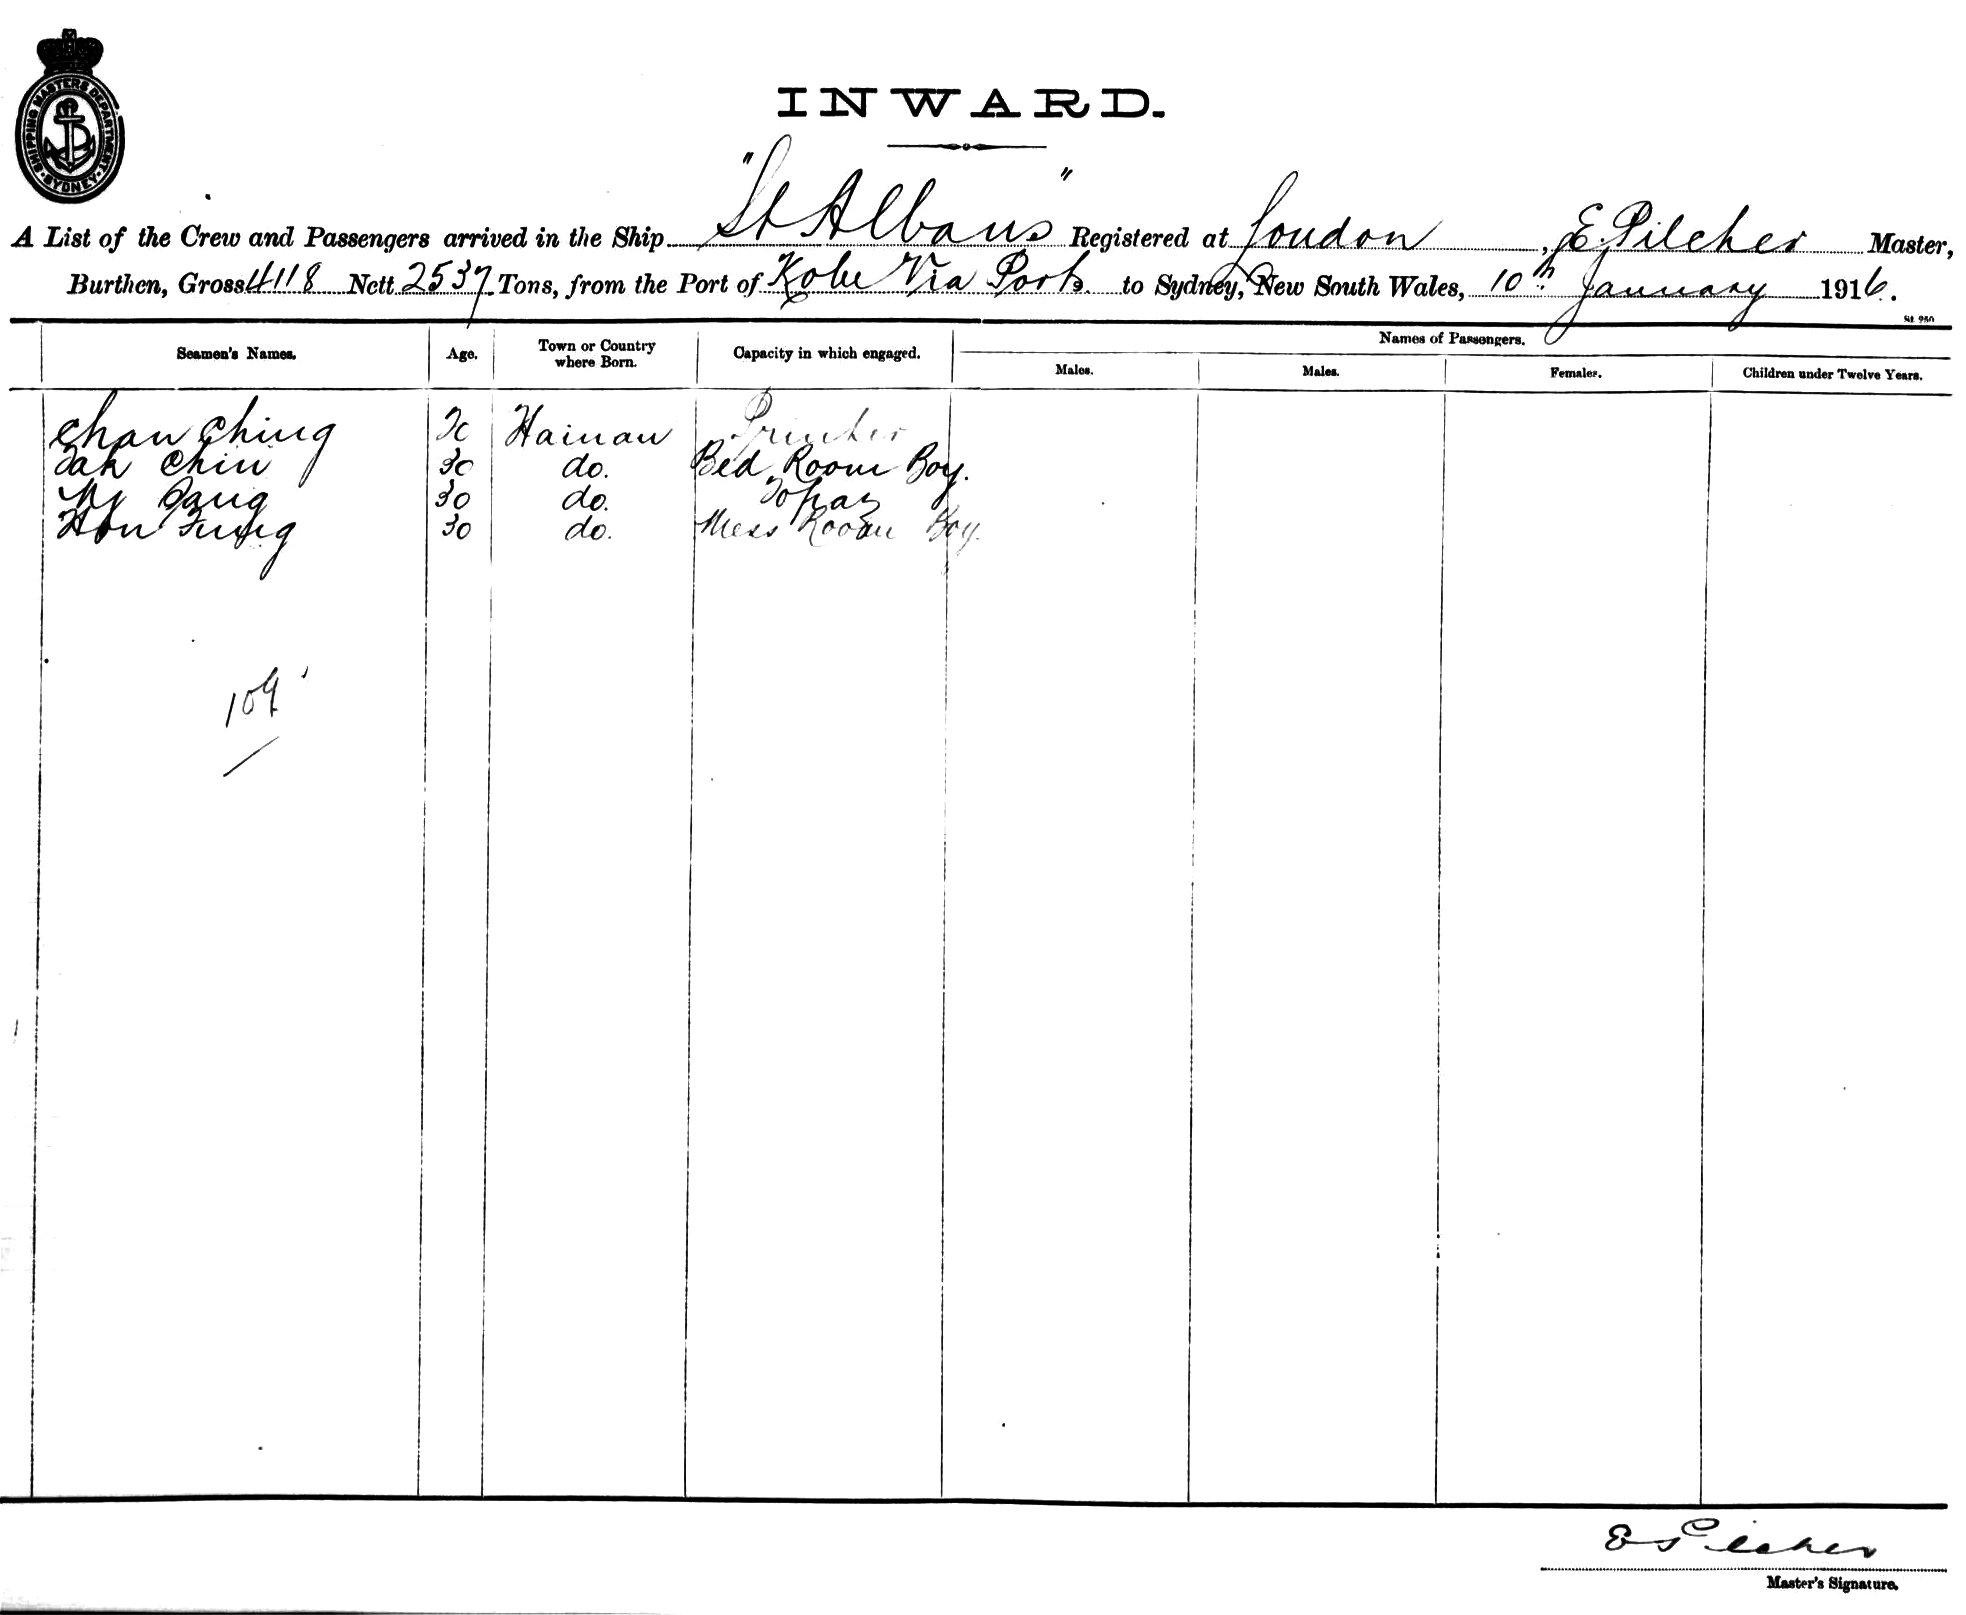 SHIPPING MASTERS DEPARTMENT
SYDNEY
INWARD.
A List of the Crew and Passengers arrived in the Ship "St Albans" Registered at London, E. Pilcher Master,
Burthen, Gross 4118 Nett 2537 Tons, from the Port of Kobe Via Ports. to Sydney, New South Wales, 10th January 1916.
Names of Passengers.
Seamen's Names. Age. Town or Country where Born. Capacity in which engaged. Males. Males. Females. Children under Twelve Years.
Chan Ching Hainan Printer
Tah Chin 30 do. Bed Room Boy.
Ny 30 do. Topaz
Hon Fung 30 do. Mess Room Boy.
109
E Pilcher
Master's Signature.